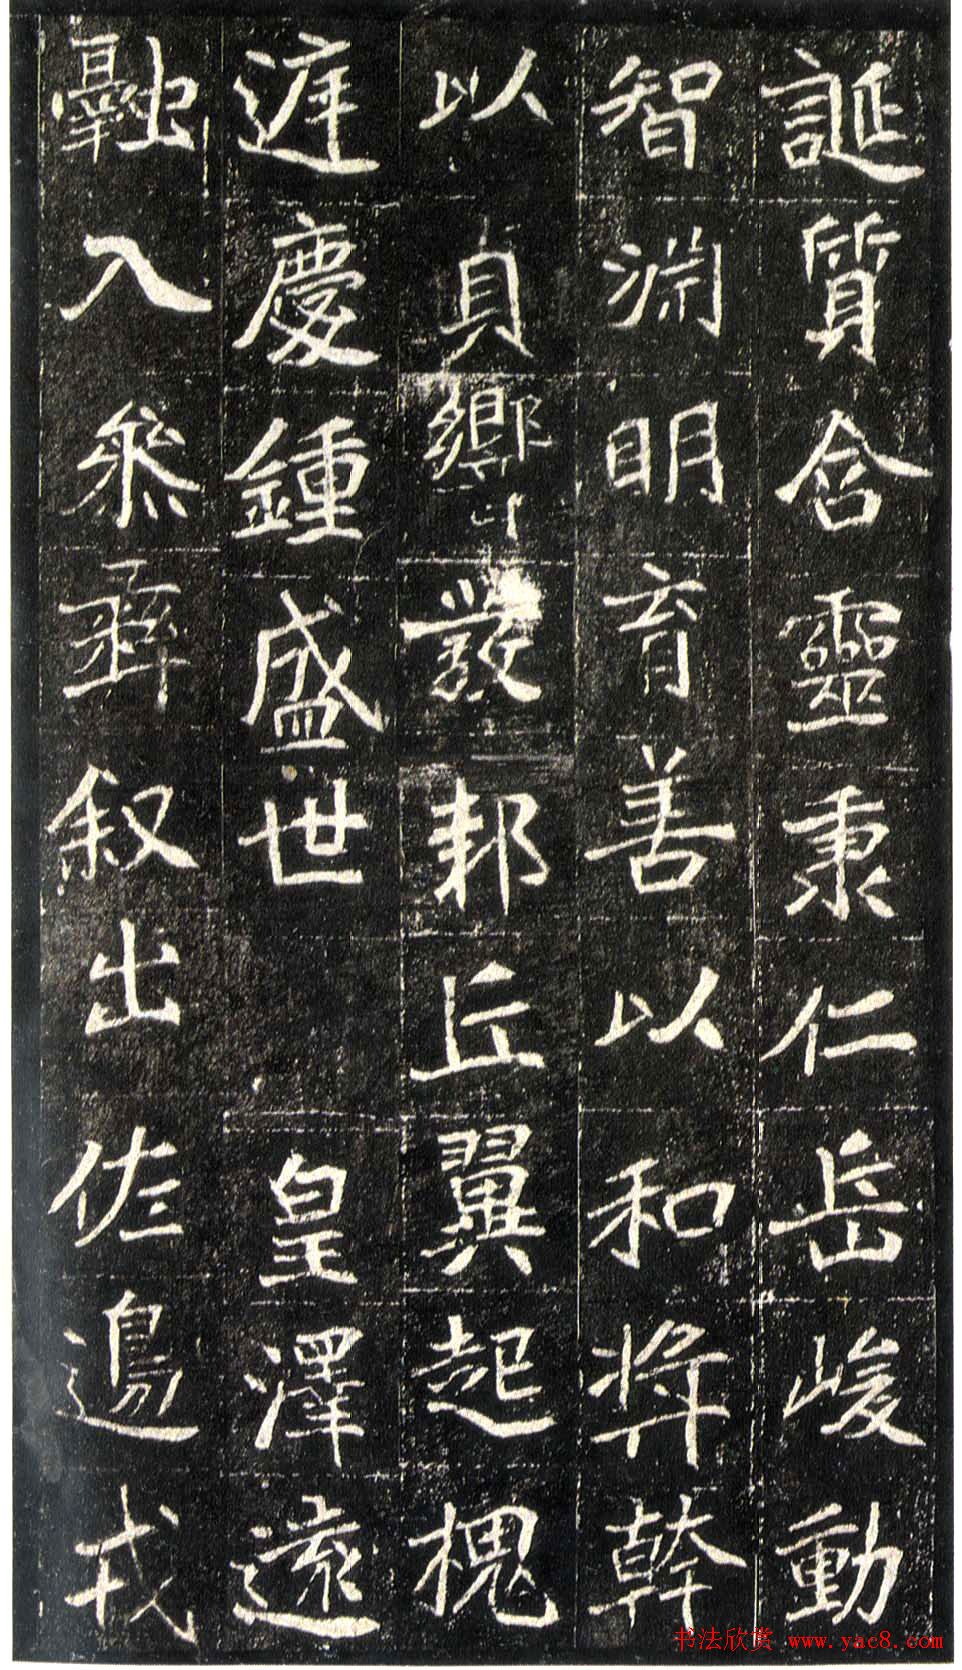 誕質含靈秉仁岳峻動
智淵明育善以和將幹
以貞響發邦丘翼起槐
庭慶鍾盛世皇澤遠
融入參彝叙出佐邊戎
书法欣赏 www.yac8.com